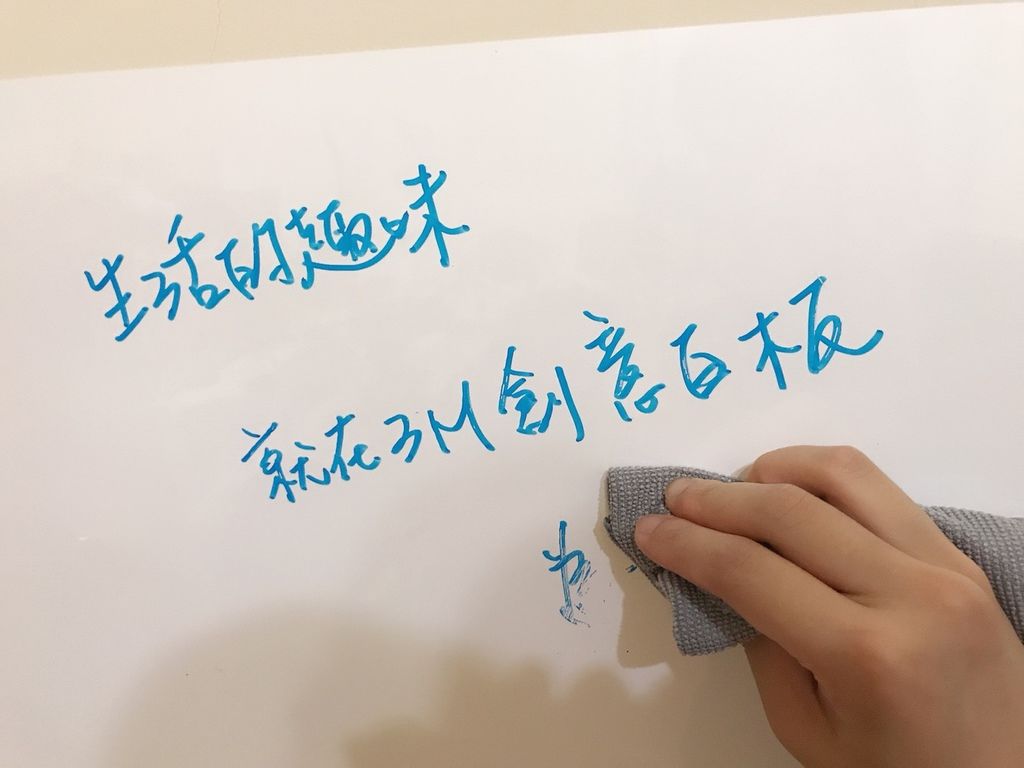 生活的趣味
就在3M創意白板